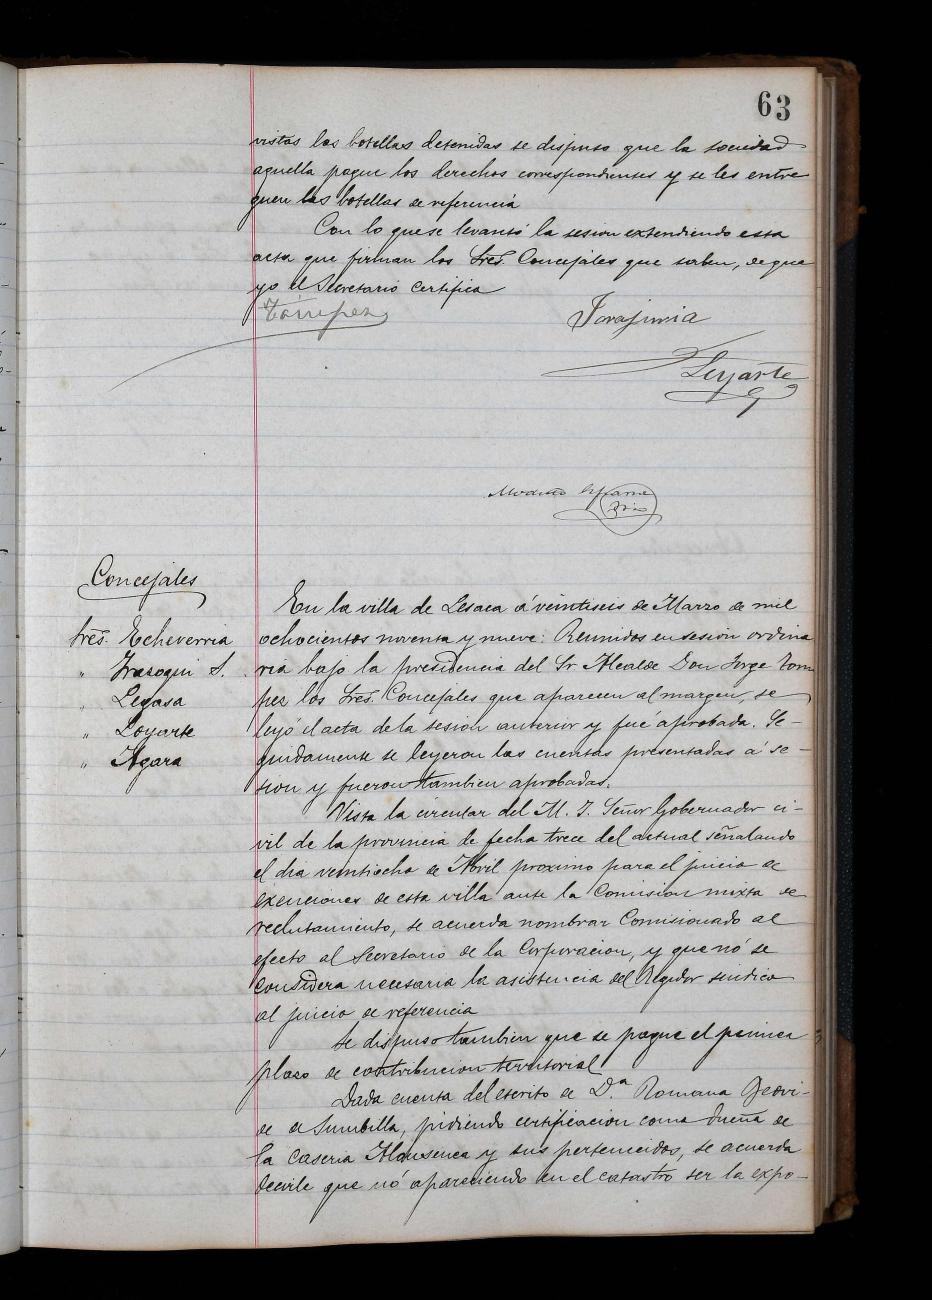 63
vistas las botellas detenidas se dispuso que la sociedad
aquella pague los derechos correspondientes y se les entre
guen las botellas de referencia
Con lo que se levantó la sesion extendiendo esta
acta que firman los Sres. Concejales que saben, de que
yo el Secretario certifica
Tómpez
Loyarte
Modesto
Concejales
Sres. Echeverria
" Irazoqui S.
" Legasa
" Loyarte
" Agara
En la villa de Lesaca á veintiseis de Marzo de mil
ochocientos noventa y nueve: Reunidos en sesion ordina
ria bajo la presidencia del Sr Alcalde Don Jorge Tom
pez los Sres. Concejales que aparecen al margen, se
leyó el acta de la sesion anterior y fué aprobada. Se-
guidamente se leyeron las cuentas presentadas á se-
sion y fueron tambien aprobadas.
Vista la circular del M. I. Señor Gobernador ci-
vil de la provincia de fecha trece del actual señalando
el dia veintiocho de Abril proximo para el juicio de
exenciones de esta villa ante la Comision mixta de
reclutamiento, se acuerda nombrar Comisionado al
efecto al Secretario de la Corporacion, y que nó se
considera necesaria la asistencia del Regidor sindico
al juicio de referencia
Se dispuso tambien que se pague el primer
plazo de contribucion territorial
Dada cuenta del escrito de D.ª Romana
de de Sumbilla, pidiendo certificacion como dueña de
la caseria y sus pertenecidos, se acuerda
decirle que nó apareciendo en el catastro ser la expo-